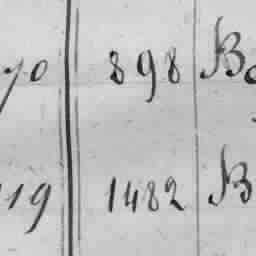 70 898 Bo
119 1482 B